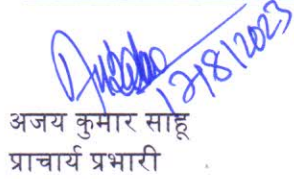 12/8/2023
अजय कुमार साहू
प्राचार्य प्रभारी